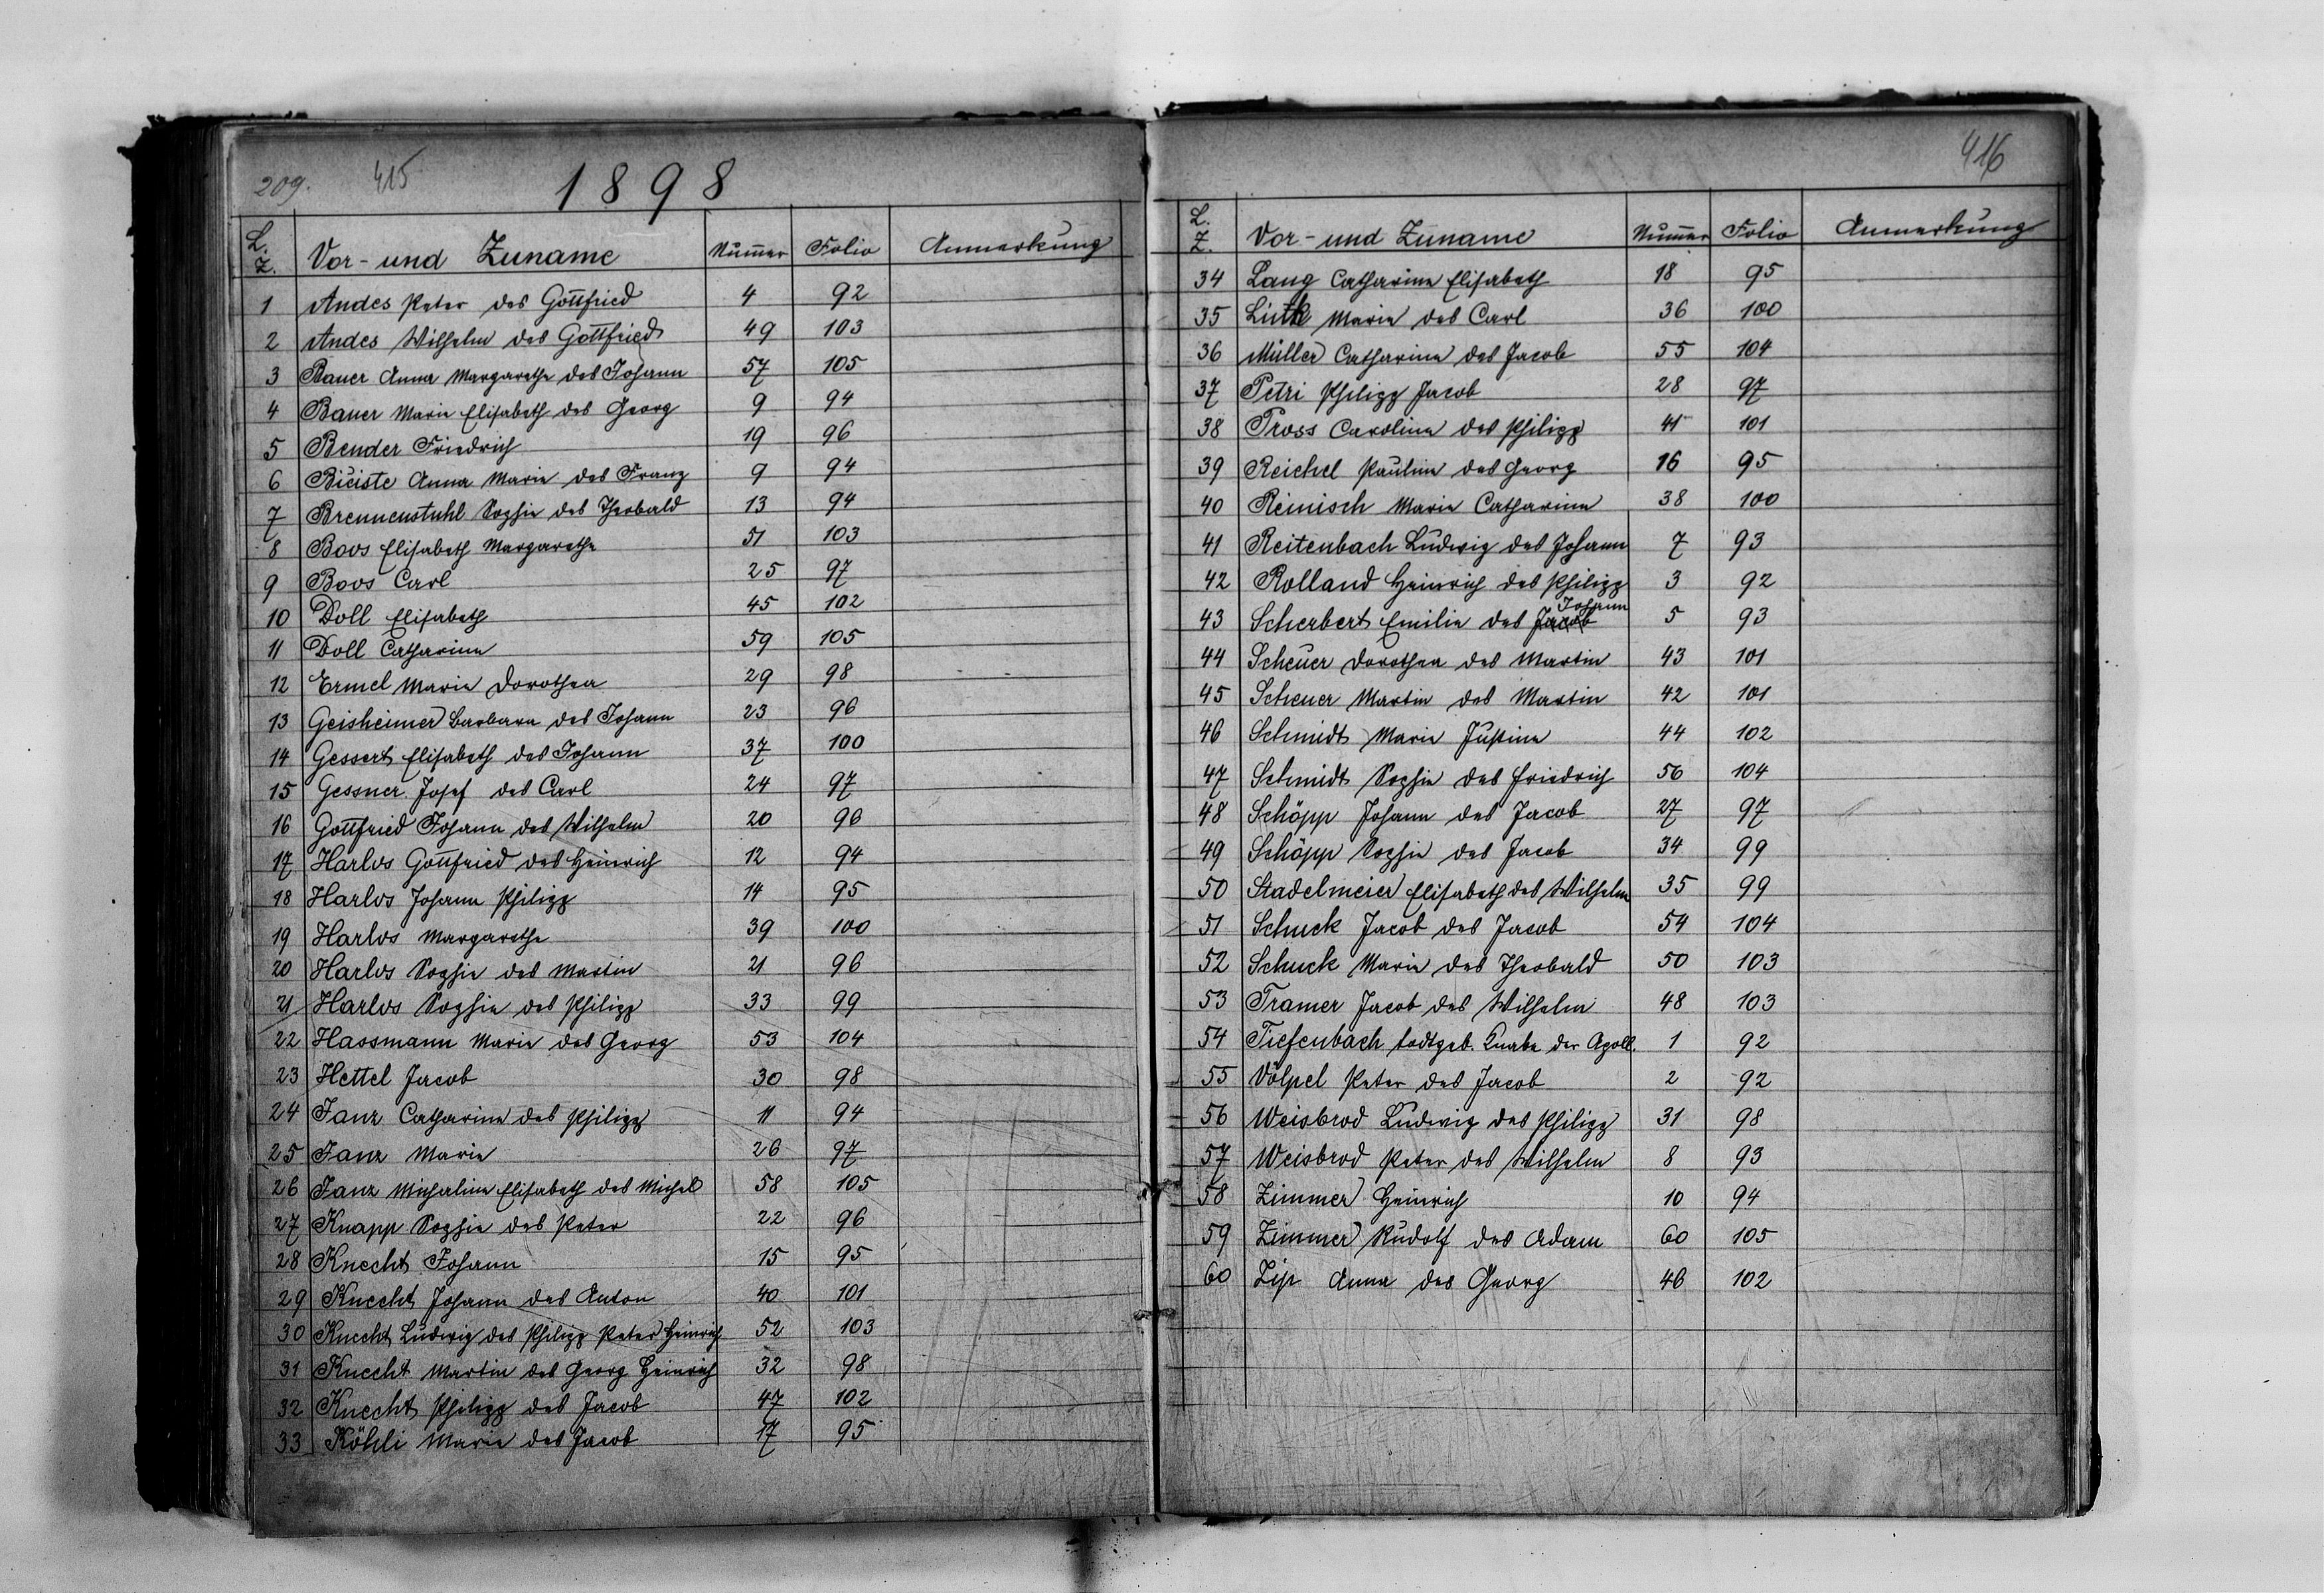 209. 415
1898
L. Z. Vor- und Zuname Num̄er Folio Anmerkung
1 Andes Peter des Gottfried 4 92
2 Andes Wilhelm des Gottfried 49 103
3 Bauer Anna Margarethe des Johann 57 105
4 Bauer Marie Elisabeth des Georg 9 94
5 Bender Friedrich 19 96
6 Biciste Anna Marie des Franz 9 94
7 Brennenstuhl Sophie des Theobald 13 94
8 Boos Elisabeth Margarethe 51 103
9 Boos Carl 25 97
10 Doll Elisabeth 45 102
11 Doll Catharina 59 105
12 Ermel Marie Dorothea 29 98
13 Geisheimer Barbara des Johann 23 96
14 Gessert Elisabeth des Johann 37 100
15 Gessner Josef des Carl 24 97
16 Gottfried Johann des Wilhelm 20 96
17 Harlos Gottfried des Heinrich 12 94
18 Harlos Johann Philipp 14 95
19 Harlos Margarethe 39 100
20 Harlos Sophie des Martin 21 96
21 Harlos Sophie des Philipp 33 99
22 Hassmann Marie des Georg 53 104
23 Hettel Jacob 30 98
24 Janz Catharina des Philipp 11 94
25 Janz Marie 26 97
26 Janz Michaline Elisabeth des Michel 58 105
27 Knapp Sophie des Peter 22 96
28 Knecht Johann 15 95
29 Knecht Johann des Anton 40 101
30 Knecht Ludwig des Philipp Peter Heinrich 52 103
31 Knecht Martin des Georg Heinrich 32 98
32 Knecht Philipp des Jacob 47 102
33 Köhli Marie des Jacob 17 95
416
L. Z. Vor- und Zuname Num̄er Folio Anmerkung
34 Lang Catharina Elisabeth 18 95
35 Link Marie des Carl 36 100
36 Müller Catharina des Jacob 55 104
37 Petri Philipp Jacob 28 97
38 Pross Carolina des Philipp 41 101
39 Reichel Paulin des Georg 16 95
40 Reinisch Marie Catharina 38 100
41 Reitenbach Ludwig des Johann 7 93
42 Rolland Heinrich des Philipp 3 92
43 Scherbert Emilie des Jacob Johann 5 93
44 Scheuer Dorothea des Martin 43 101
45 Scheuer Martin des Martin 42 101
46 Schmidt Marie Justina 44 102
47 Schmidt Sophie des Friedrich 56 104
48 Schöpp Johann des Jacob 27 97
49 Schöpp Sophie des Jacob 34 99
50 Stadelmeier Elisabeth des Wilhelm 35 99
51 Schuck Jacob des Jacob 54 104
52 Schuck Marie des Theobald 50 103
53 Tramer Jacob des Wilhelm 48 103
54 Tiefenbach todtgeb. Knabe der Apoll. 1 92
55 Völpel Peter des Jacob 2 92
56 Weisbrod Ludwig des Philipp 31 98
57 Weisbrod Peter des Wilhelm 8 93
58 Zimmer Heinrich 10 94
59 Zimmer Rudolf des Adam 60 105
60 Zip Anna des Georg 46 102